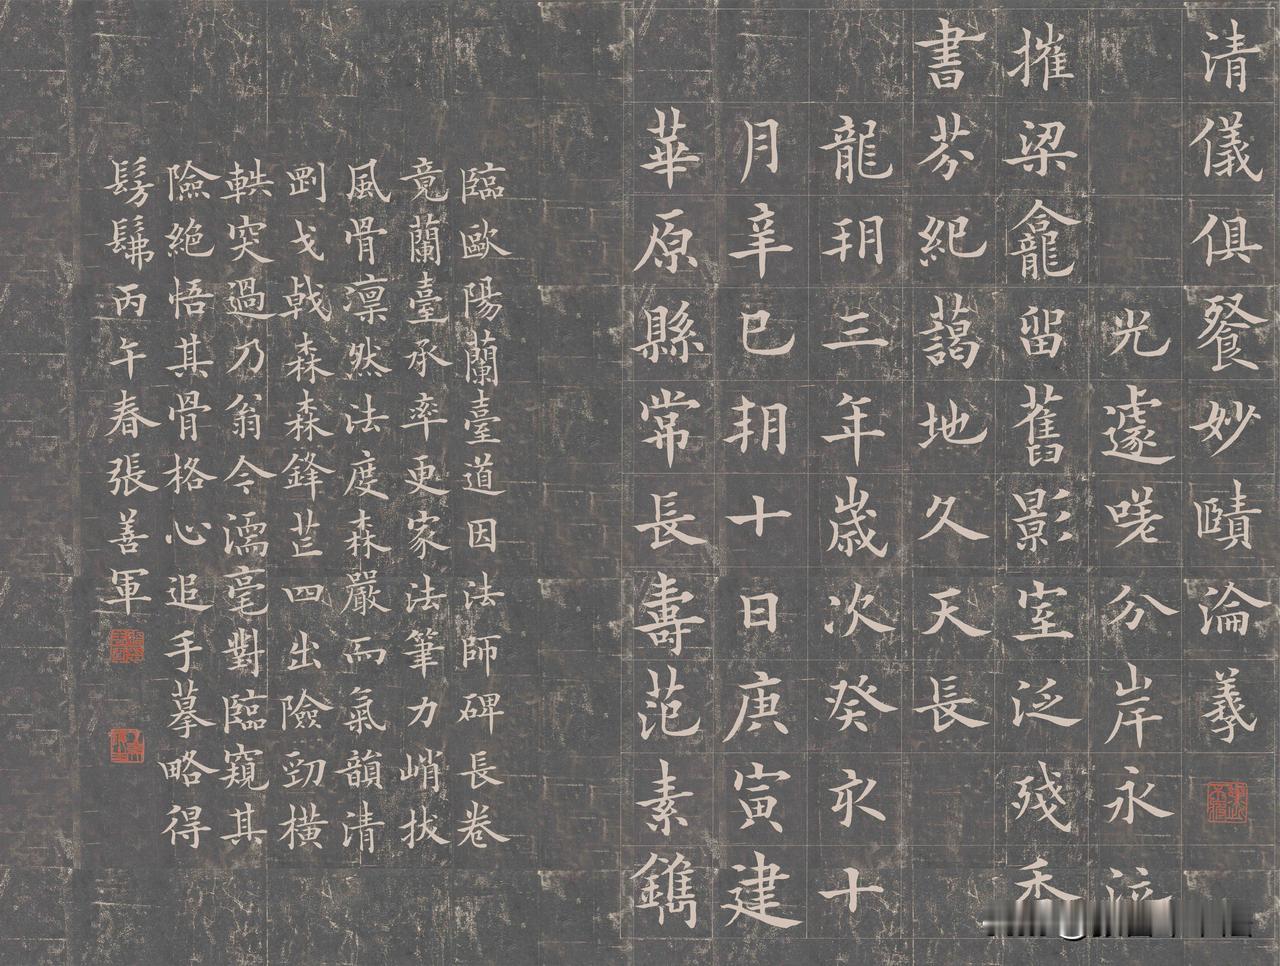 清儀俱餐妙賾淪義
光遽嗟分岸永泣
摧梁龕留舊影室泛殘香
書芬紀藹地久天長
龍朔三年歲次癸亥十
月辛巳朔十日庚寅建
華原縣常長壽范素鐫
臨歐陽蘭臺道因法師碑長卷
竟蘭臺承率更家法筆力峭拔
風骨凜然法度森嚴而氣韻清
剛戈戟森森鋒芒四出險勁橫
軼突過乃翁今濡毫對臨窺其
險絕悟其骨格心追手摹略得
髣髴丙午春張善軍